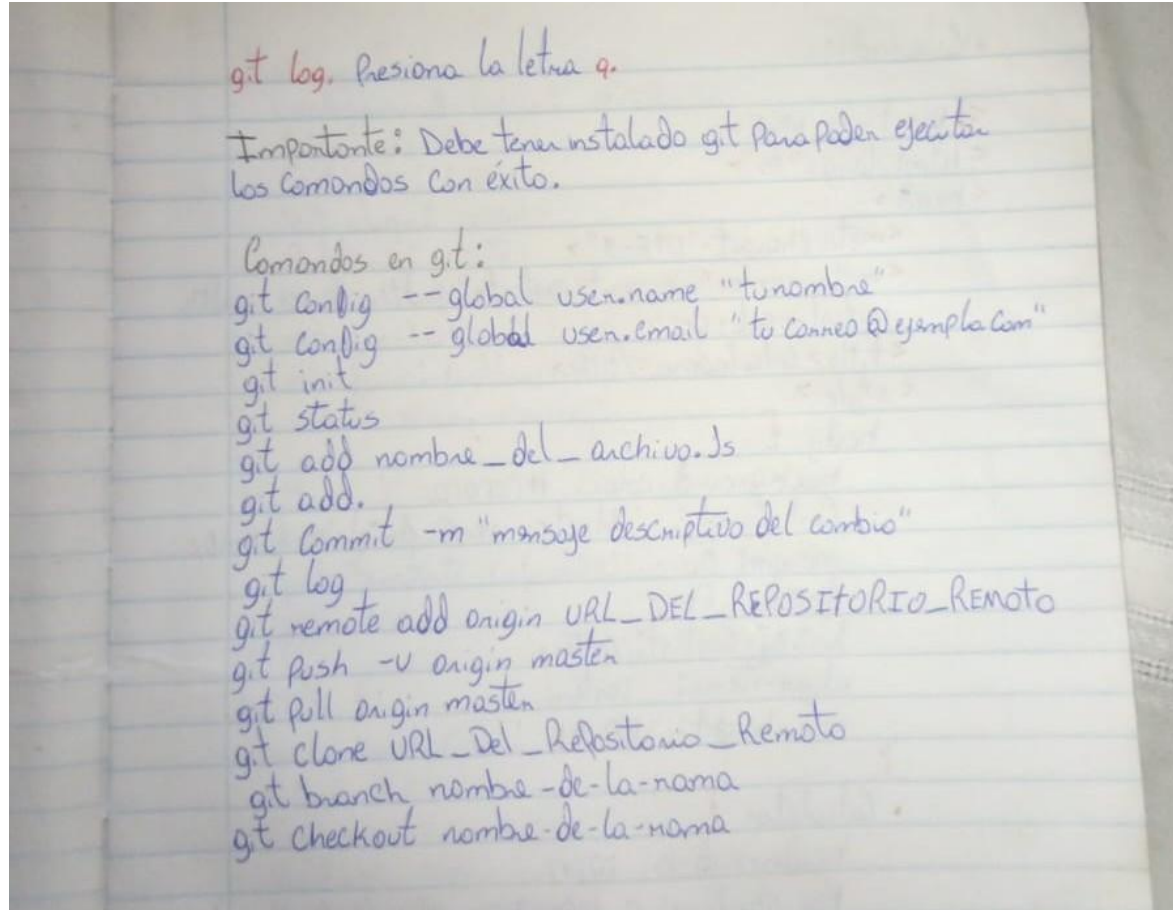 git log. Presiona la letra q.
Importante: Debe tener instalado git Para Poder ejecutar
los Comandos Con éxito.
Comandos en git:
git config --global user.name "tu nombre"
git config -- global user.email "tu correo@ejemplo.com"
git init
git status
git add nombre_del_archivo.Js
git add.
git Commit -m "mensaje descriptivo del cambio"
git log
git remote add origin URL_DEL_REPOSITORIO_REMOTO
git Push -U origin master
git Pull origin master
git clone URL_Del_Repositorio_Remoto
git branch nombre-de-la-rama
git checkout nombre-de-la-rama